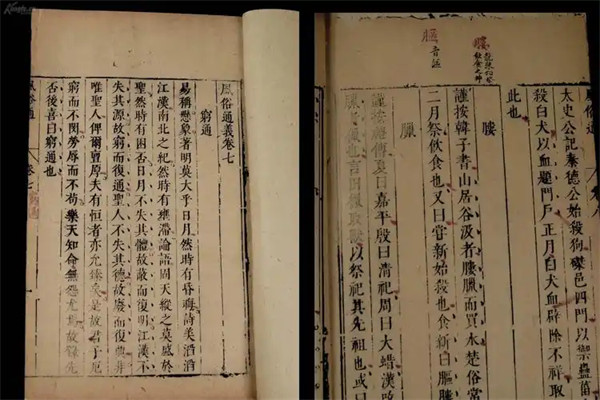 風俗通義卷七
窮通
易稱懸象著明莫大乎日月然時有昏晦詩美滔滔
江漢南北之紀然時有壅滯論語固天縱之莫盛於
聖然時有困否日月不失其體故蔽而復明江漢不
失其源故窮而復通聖人不失其德故廢而復興非
唯聖人俾爾亶厚夫有恒者亦允臻矣是故君子厄
窮而不閔勞辱而不苟樂天知命無怨尤焉故錄先
否後喜曰窮通也
風俗通
卷七
太史公記秦德公始殺狗磔邑四門以禦蠱菑
殺白犬以血題門戶正月白犬血辟除不祥取
此也
膢
謹按韓子書山居谷汲者膢臘而買水楚俗常
二月祭飲食也又曰嘗新始殺也食新曰膢
臘
謹按禮傳夏曰嘉平殷曰清祀周曰大蜡漢改
以祭祀其先祖也或曰
膢
音